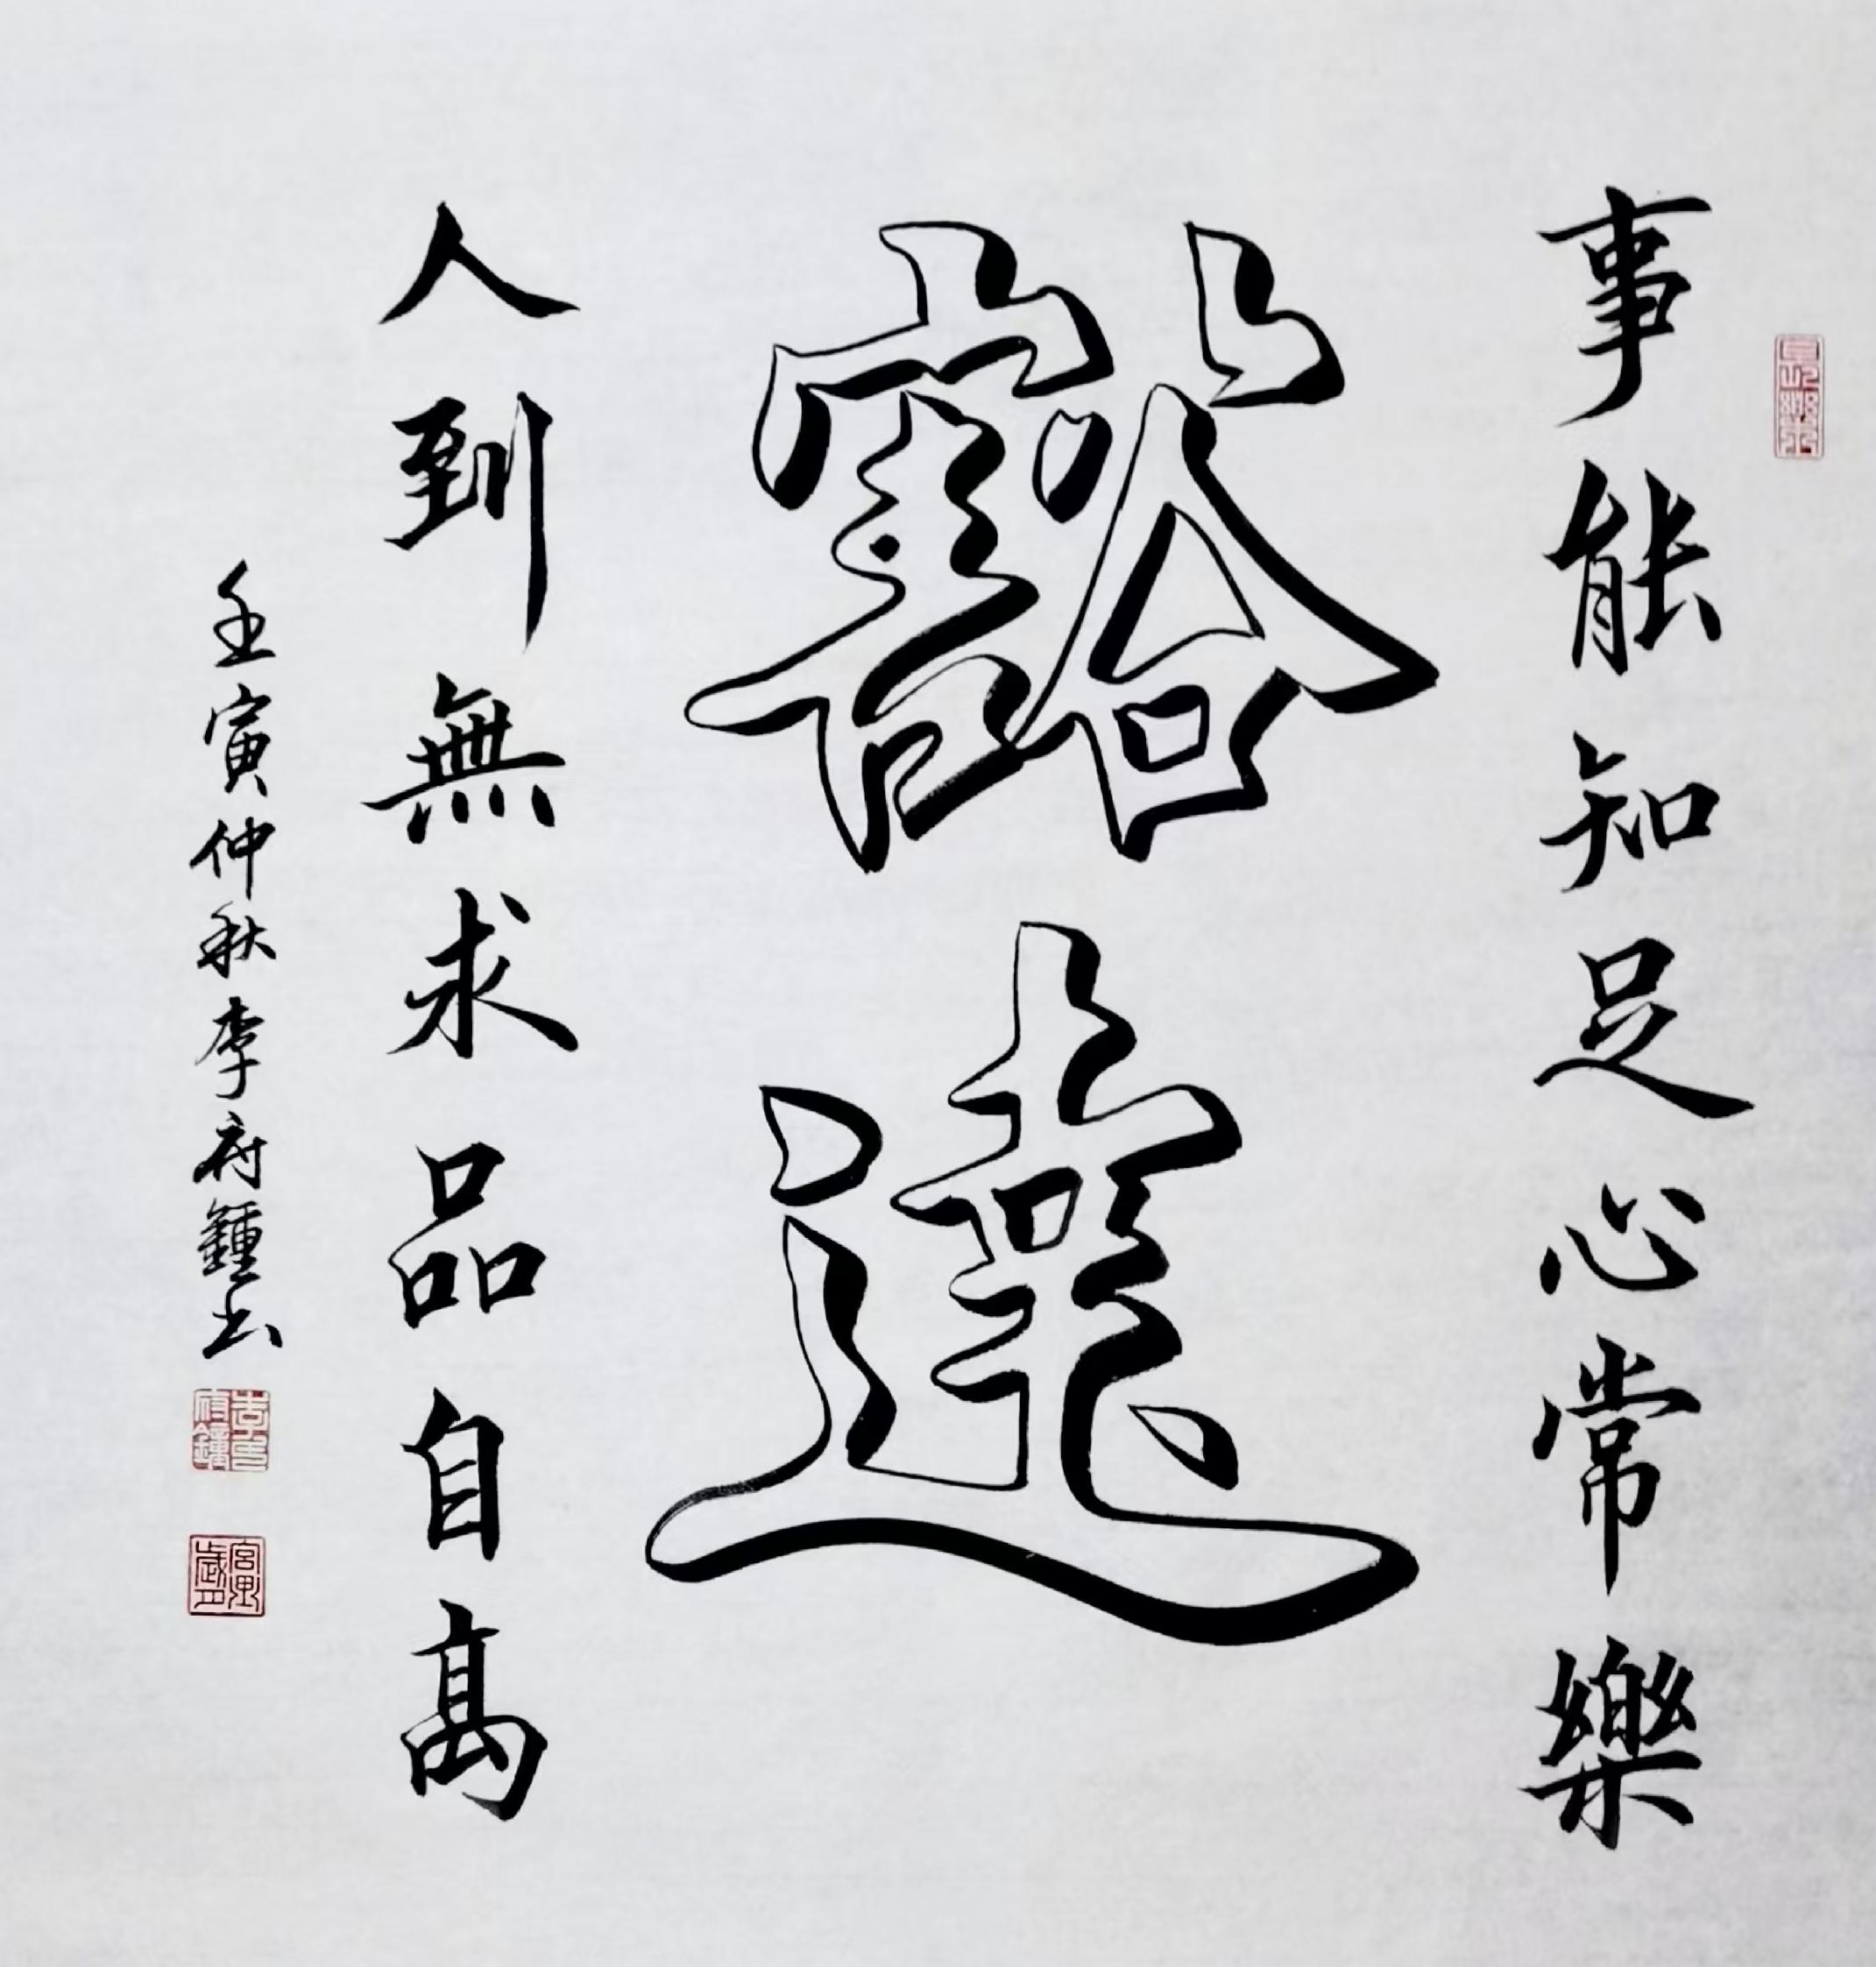 事能知足心常樂
豁達
人到無求品自高
壬寅仲秋李府鍾書
李府